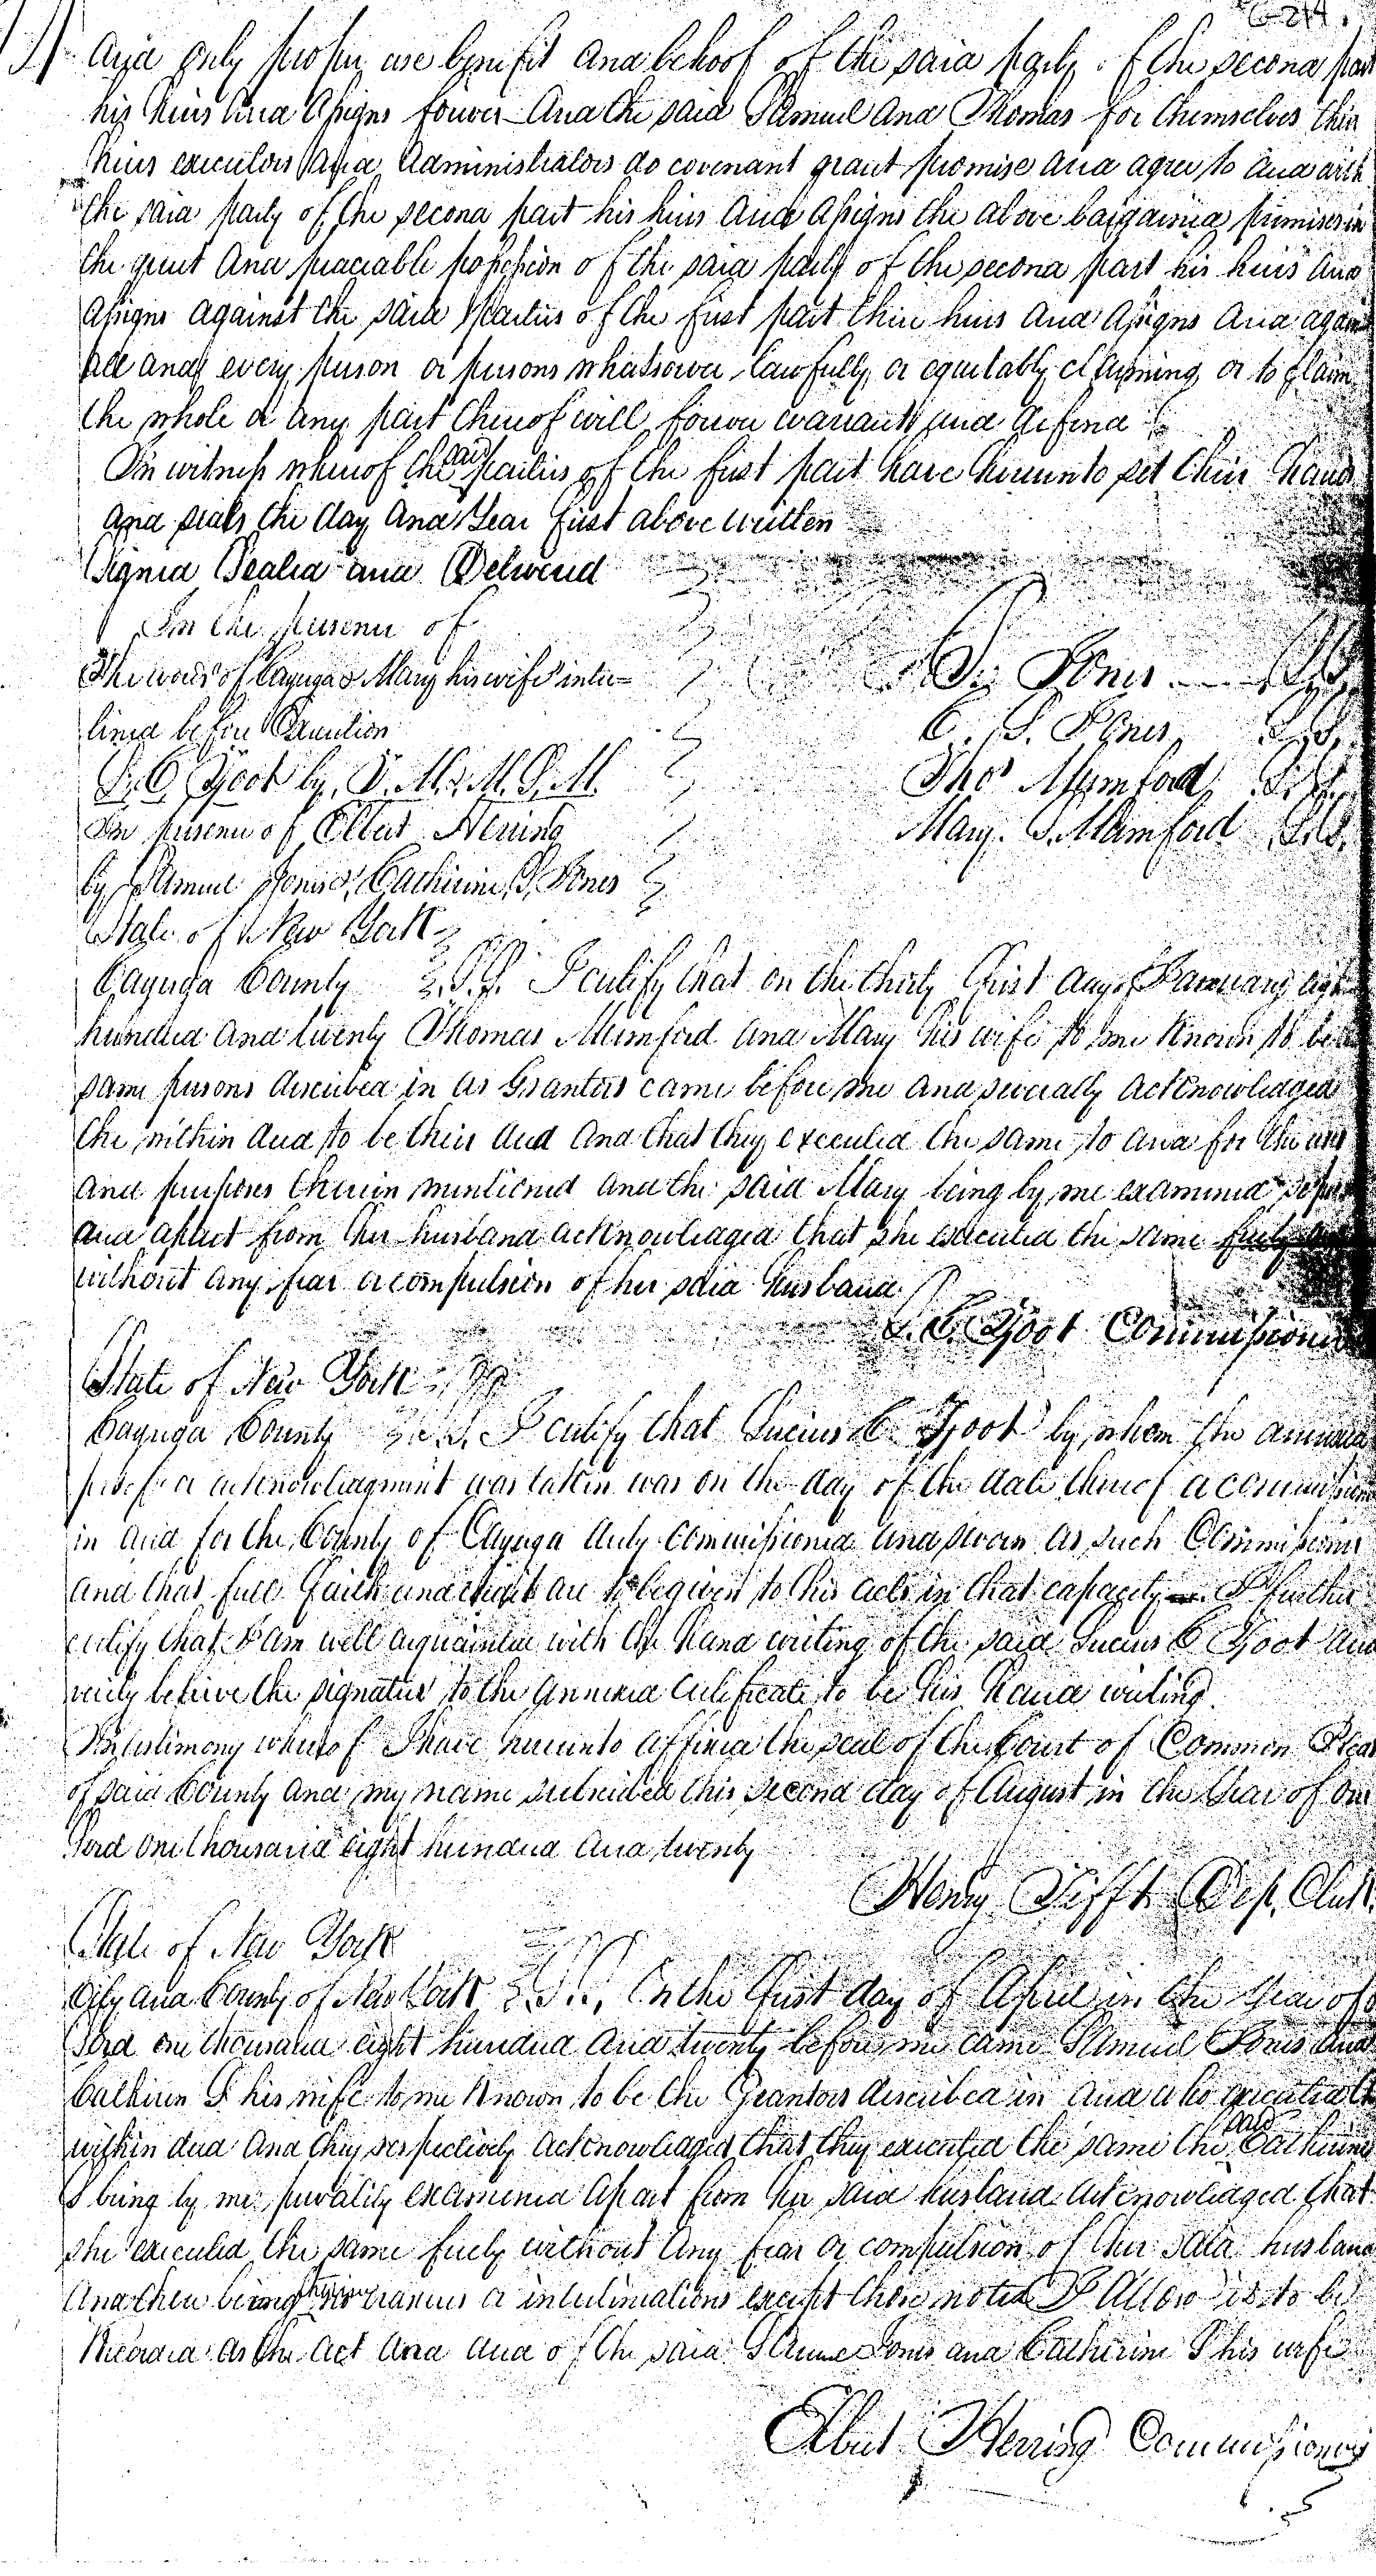 and only proper use benefit and behoof of the said party of the second part
his heirs and assigns forever And the said Samuel and Thomas for themselves their
heirs executors and Administrators do covenant grant promise and agree to and with
the said party of the second part his heirs and assigns the above bargained premises in
the quiet and peaceable possession of the said party of the second part his heirs and
assigns against the said parties of the first part their heirs and assigns and against
all and every person or persons whatsoever lawfully or equitably claiming or to claim
the whole or any part thereof will forever warrant and defend
In witness whereof the said parties of the first part have hereunto set their hands
and seals the day and Year first above written
Signed Sealed and Delivered
In the presence of
The words of Cayuga & Mary his wife inter=
lined before Execution
S. Jones
C. S. Jones
L. C. Foot by T. M. & M. S. M.
Thos Mumford
In presence of Elbert Herring
Mary S. Mumford
by Samuel Jones & Catherine S. Jones
State of New York
Cayuga County S.S. I certify that on the thirty first day of January eighteen
hundred and twenty Thomas Mumford and Mary his wife to me Known to be the
same persons described in as Grantors came before me and severally acknowledged
the within deed to be their deed and that they executed the same to and for the uses
and purposes therein mentioned and the said Mary being by me examined separate
and apart from her husband acknowledged that she executed the same freely and
without any fear or compulsion of her said husband
L. C. Foot Commissioner
State of New York
Cayuga County S.S. I certify that Lucius C. Foot by whom the annexed
proof or acknowledgment was taken was on the day of the date thereof a commissioner
in and for the County of Cayuga duly commissioned and sworn as such Commissioner
and that full faith and credit are to be given to his acts in that capacity I further
certify that I am well acquainted with the hand writing of the said Lucius C Foot and
verily believe the signature to the annexed certificate to be his hand writing
In testimony whereof I have hereunto affixed the seal of the Court of Common Pleas
of said County and my name subscribed this second day of August in the Year of our
Lord one thousand eight hundred and twenty
Henry Tifft Dep. Clerk
State of New York
City and County of New York S.S. On the first day of April in the Year of our
Lord one thousand eight hundred and twenty before me came Samuel Jones and
Catherine S his wife to me Known to be the Grantors described in and who executed the
within deed and they respectively acknowledged that they executed the same the said Catherine
S being by me privately examined apart from her said husband acknowledged that
she executed the same freely without any fear or compulsion of her said husband
And there being therein no erasures or interlineations except those noted I Allow it to be
Recorded as the act and deed of the said Samuel Jones and Catherine S his wife
Elbert Herring Commissioner